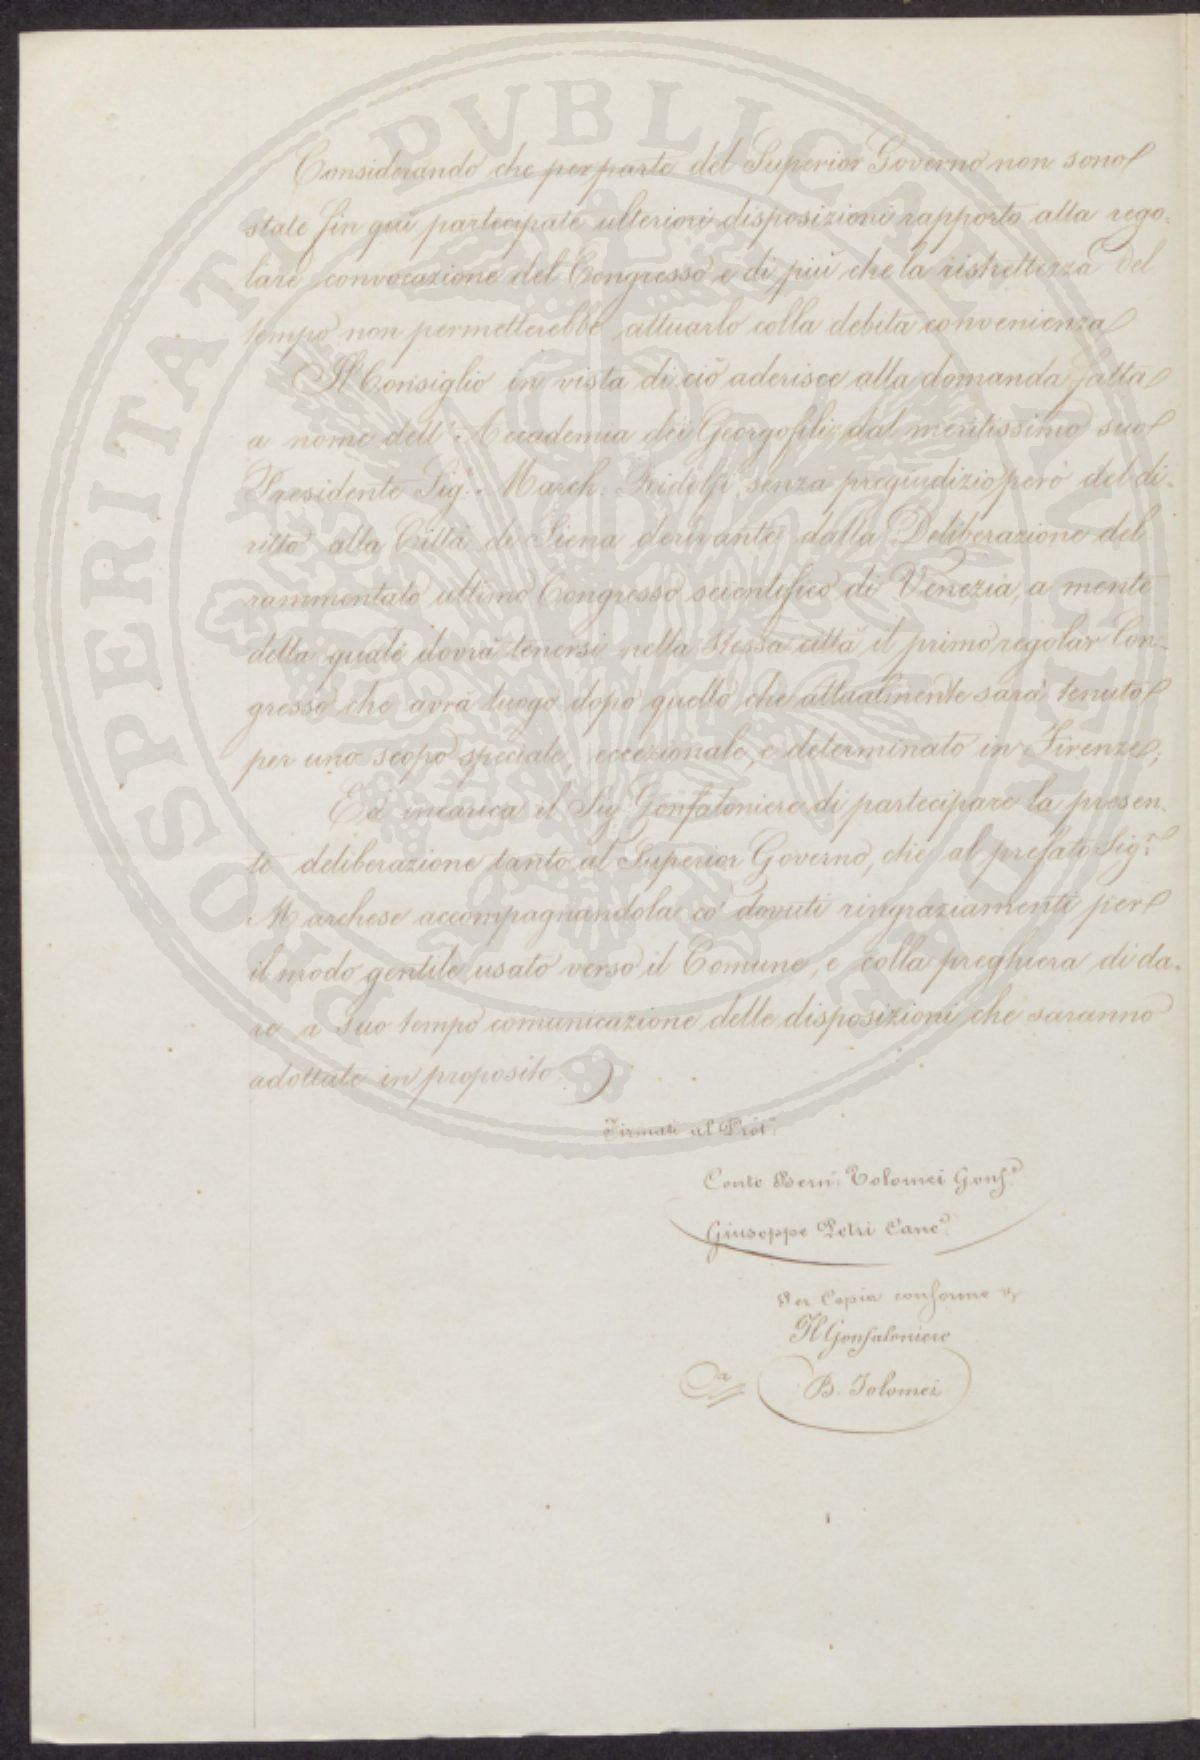 PROSPERITATI PUBLICAE AUGENDAE
Considerando che per parte del Superior Governo non sono
state fin qui partecipate ulteriori disposizioni rapporto alla rego-
lare convocazione del Congresso e di più che la ristrettezza del
tempo non permetterebbe attuarlo colla debita convenienza
Il Consiglio in vista di ciò aderisce alla domanda fatta
a nome dell'Accademia dei Georgofili dal meritissimo suo
Presidente Sig.r March. Ridolfi senza pregiudizio però del di-
ritto alla Città di Siena derivante dalla Deliberazione del
rammentato ultimo Congresso scientifico di Venezia, a mente
della quale dovrà tenersi nella stessa città il primo regolar Con-
gresso che avrà luogo dopo quello che attualmente sarà tenuto
per uno scopo speciale, eccezionale, e determinato in Firenze;
Ed incarica il Sig. Gonfaloniere di partecipare la presen-
te deliberazione tanto al Superior Governo, che al prefato Sig.r
Marchese accompagnandola co' dovuti ringraziamenti per
il modo gentile usato verso il Comune, e colla preghiera di da-
re a suo tempo comunicazione delle disposizioni che saranno
adottate in proposito.
Firmati al Prot.
Conte Bern. Tolomei Gonf.e
Giuseppe Petri Canc.e
Per Copia conforme
Il Gonfaloniere
B. Tolomei